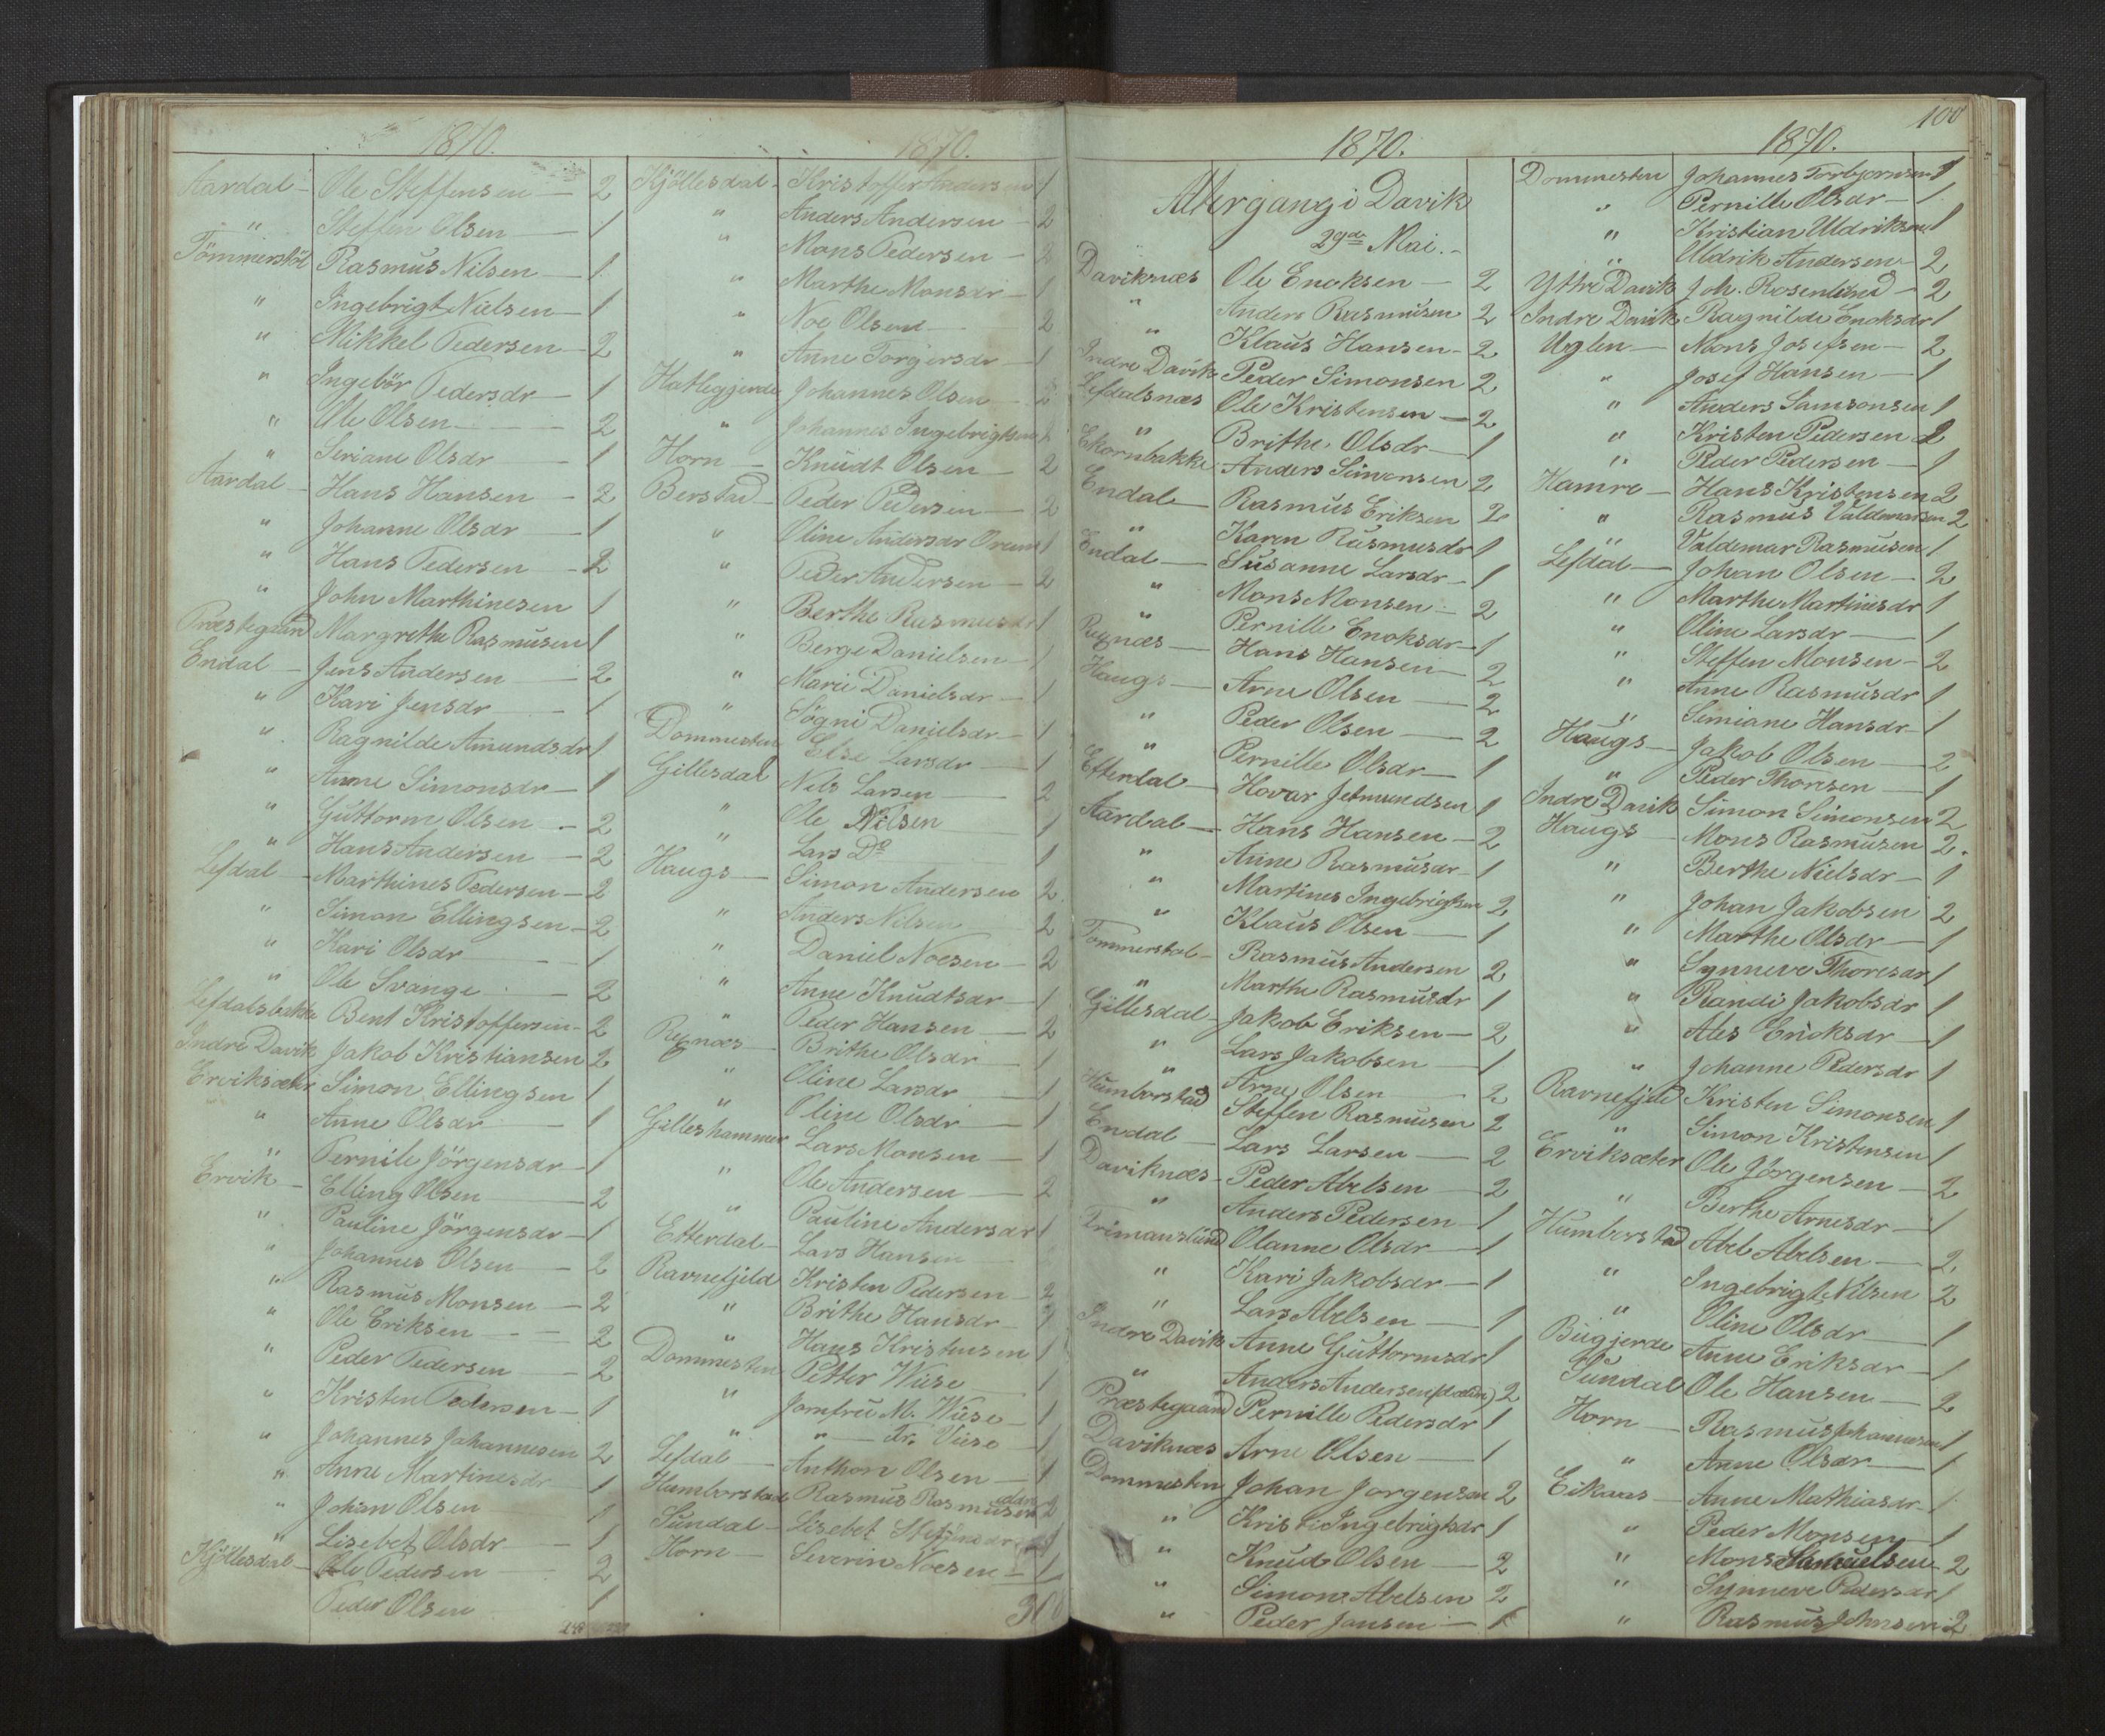 1870.
Aardal - Ole Steffensen - 2
" Steffen Olsen - 1
Tömmerstöl Rasmus Nilsen - 1
" Ingebrigt Nielsen - 1
" Mikkel Pedersen - 2
" Ingebör Pedersdr - 1
" Ole Olsen - 2
" Seriane Olsdr - 1
Aardal - Hans Hansen - 2
" Johanne Olsdr - 1
" Hans Pedersen - 2
" John Marthinesen 1
Præstegaard Margrethe Rasmusen 1
Endal - Jens Andersen - 2
" Kari Jensdr - 1
" Ragnilde Amundsdr 1
" Anne Simonsdr - 1
" Guttorm Olsen - 2
" Hans Andersen - 2
Lefdal - Marthines Pedersen - 2
" Simon Ellingsen - 2
" Kari Olsdr - 1
" Ole Svange - 2
Lefdalsbakke Bent Kristoffersen - 2
Indre Davik Jakob Kristiansen 2
Erviksæter Simon Ellingsen 1
" Anne Olsdr - 1
" Pernile Jörgensdr - 1
Ervik - Elling Olsen - 2
" Pauline Jörgensdr - 1
" Johannes Olsen - 2
" Rasmus Monsen - 2
" Ole Eriksen - 2
" Peder Pedersen - 2
" Kristen Pedersen - 1
" Johannes Johannesen 2
" Anne Martinesdr - 1
" Johan Olsen 1
" Lisebet Olsdr - 1
Kjöllesdal - Ole Pedersen - 2
Peder Olsen 1
1870.
Kjöllesdal - Kristoffer Andersen 1
" Anders Andersen - 2
" Mons Pedersen - 2
" Marthe Monsdr - 1
" Noe Olsen - 2
" Anne Torgersdr - 1
Hatlegjerde Johannes Olsen - 2
" Johannes Ingebrigtsen
Horn - Knudt Olsen - 2
Berstad - Peder Pedersen - 2
" Oline Andersdr 1
" Peder Andersen - 2
" Berthe Rasmusdr 1
" Berge Danielsen - 1
" Marie Danielsdr - 1
" Sögni Danielsdr - 1
Dommesten Else Larsdr - 1
Gillesdal Nils Larsen - 2
" Ole Nilsen 1
" Lars Do 1
Haugs - Simon Andersen 2
" Anders Nilsen 2
" Daniel Noesen - 2
" Anne Knudtsdr - 1
" Peder Hansen - 2
Rygnæs - Brithe Olsdr - 1
" Oline Larsdr - 1
" Oline Olsdr - 1
Gilleshammer Lars Monsen - 1
" Ole Andersen - 2
" Pauline Andersdr 1
Etterdal - Lars Hansen
Ravnefjeld Kristen Pedersen - 2
" Brithe Hansdr -
" Hans Kristensen 1
Dommesten Petter Wiese 1
" Jomfru M. Wiese - 1
" " - Fr. Viise - 1
Lefdal - Anthon Olsen - 1
Humborstad Rasmus Rasmusen 2
Sundal - Lisebet
Horn - Severin Noesen - 1
100
1870.
Altergang i Davik
29de Mai. -
Daviknæs Ole Enoksen - 2
" Anders Rasmusen 2
" Klaus Hansen - 2
Indre Davik Peder Simonsen 2
Lefdalsnæs Ole Kristensen - 2
" Brithe Olsdr - 1
Ekornbakke Anders Simonsen 2
Endal - Rasmus Eriksen 2
" Karen Rasmusdr 1
Endal - Susanne Larsdr - 1
" Mons Monsen - 2
" Pernille Enoksdr - 1
Rygnæs - Hans Hansen - 2
Haugs - Arne Olsen - 2
" Peder Olsen - 2
" Pernille Olsdr - 1
Etterdal - Hovar Jetmundsen 1
Aardal - Hans Hansen - 2
" Anne Rasmusdr - 1
" Martines Ingebrigtsen 2
" Klaus Olsen - 1
Tommerstol - Rasmus Andersen 2
" Marthe Rasmusdr 1
Gillesdal - Jakob Eriksen - 2
" Lars Jakobsen - 1
" Arne Olsen 2
Humborstad Steffen Rasmusen 2
Endal - Lars Larsen - 2
Daviknæs - Peder Abelsen - 2
" Anders Pedersen - 1
Frimanslund Olanne Olsdr - 1
" Kari Jakobsdr - 1
" Lars Abelsen - 1
Indre Davik Anne Guttormsdr 1
" Anders Andersen 2
Præstegaard Pernille Pedersdr 1
Daviknæs Arne Olsen - 1
Dommesten Johan Jorgensen 2
" Kristi Ingebrigtsdr 1
" Knud Olsen - 2
" Simon Abelsen 2
" Peder Jansen - 1
1870.
Dommesten Johannes Torbjornsen 1
" Pernille Olsdr - 1
" Kristian Uldriksen 1
" Uldrik Andersen - 2
Yttre Davik Joh. Rosenlund - 2
Indre Davik Ragnilde Enoksdr 1
Uglen - Mons Josefsen - 2
" Josef Hansen - 1
" Anders Samsonsen 1
" Kristen Pedersen 2
" Peder Pedersen - 1
Hamre - Hans Kristensen 2
" Rasmus Valdemarsen 2
" Valdemar Rasmusen 1
Lefdal - Johan Olsen - 2
" Marthe Martinesdr 1
" Oline Larsdr - 1
" Steffen Monsen - 2
" Anne Rasmusdr 1
" Simiane Hansdr - 1
Haugs - Jakob Olsen - 2
" Peder Thorsen - 1
Indre Davik Simon Simonsen 2
Haugs - Mons Rasmusen 2.
" Berthe Nielsdr - 1
" Johan Jakobsen 2
" Marthe Olsdr - 1
" Synneve Thoresdr 1
" Randi Jakobsdr 1
" Ales Ericksdr - 1
" Johanne Pedersdr 1
Ravnefjeld Kristen Simonsen 1
" Simon Kristensen 1
Erviksæter Ole Jörgensen - 2
" Berthe Arnesdr - 1
Humborstad Abel Abelsen - 2
" Ingebrigt Nilsen 2
" Oline Olsdr - 1
Bugjerde Anne Eriksdr - 1
Sundal Ole Hansen - 2
Horn - Rasmus Johannesen 1
" Anne Olsdr - 1
Eikaas - Anne Mathiasdr - 1
" Peder Monsen - 1
" Mons Samuelsen - 2
" Synneve Pedersdr 1
" Rasmus Johnsen - 2